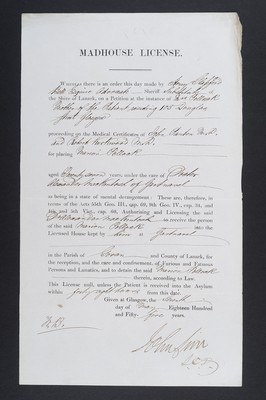 MADHOUSE LICENSE.
WHEREAS there is an order this day made by
Sheriff Substitute of
the Shire of Lanark, on a Petition at the instance of Mrs Pollock
Mother of the Patient, residing 108 Douglas
Street Glasgow
proceeding on the Medical Certificates of John M.D.
and Robert M.D.
for placing Pollock
aged Twenty seven years, under the care of Doctor
Alexander Mackintosh of Gartnavel
as being in a state of mental derangement: These are, therefore, in
terms of the Acts 55th Geo. III., cap. 69, 9th Geo. IV., cap. 34, and
4th and 5th Vict., cap. 60, Authorising and Licensing the said
Dr Alexander Mackintosh to receive the person
of the said Pollock into the
Licensed House kept by him at Gartnavel
in the Parish of Govan and County of Lanark, for
the reception, and the care and confinement, of Furious and Fatuous
Persons and Lunatics, and to detain the said Pollock
therein, according to Law.
This License null, unless the Patient is received into the Asylum
within forty eight hours from this date.
Given at Glasgow, the
day of May Eighteen Hundred
and Fifty-five years.
John